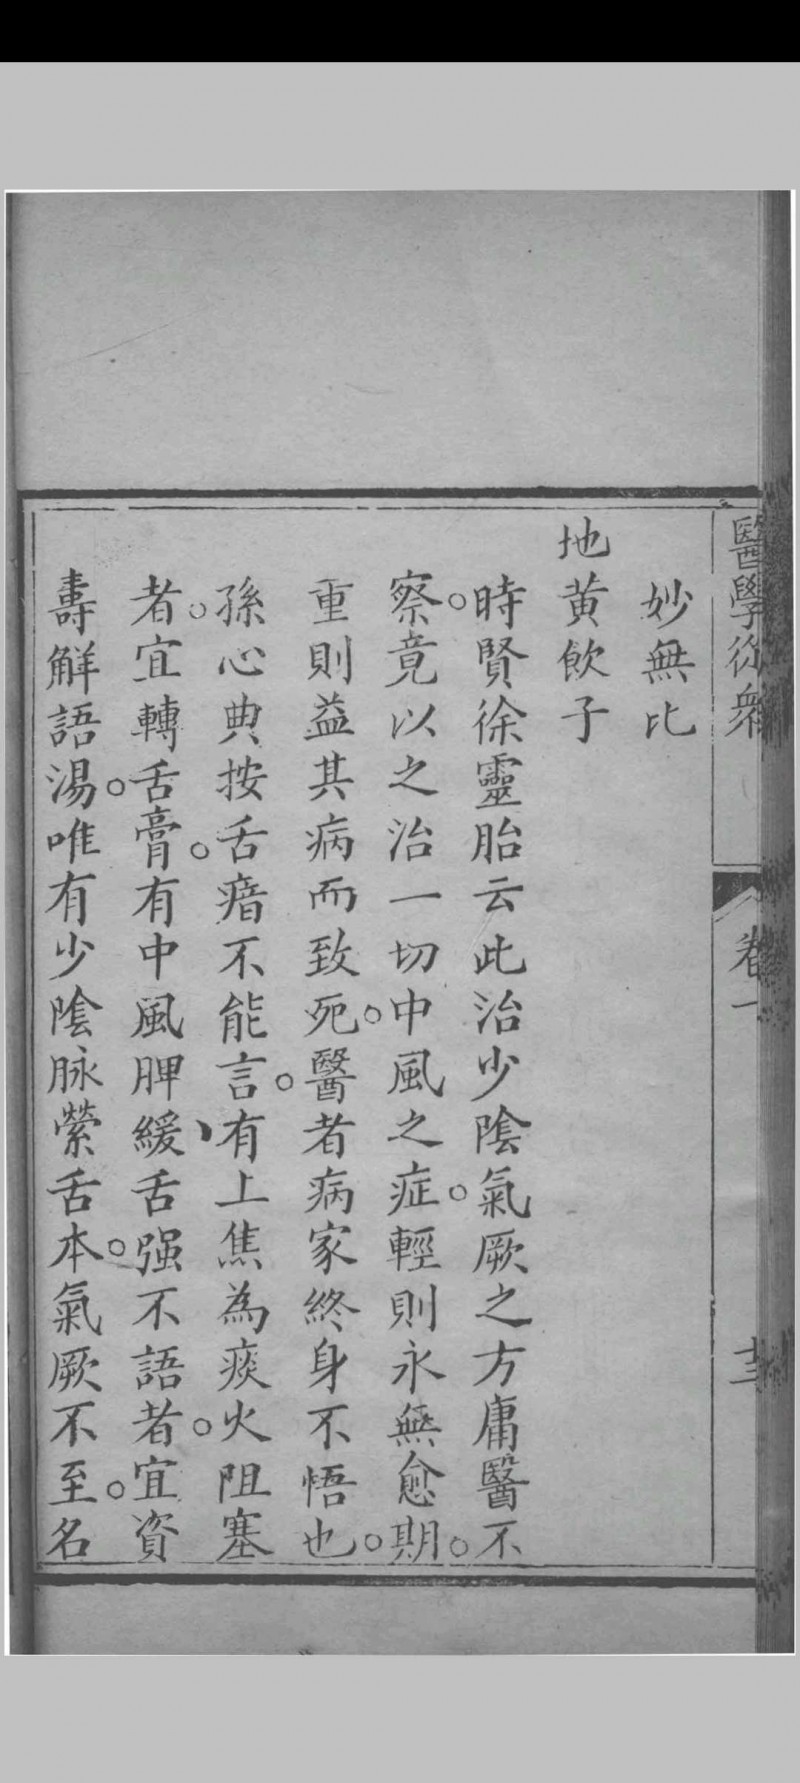 醫學從衆
卷一
十三
妙無比
地黄飲子
時賢徐靈胎云此治少陰氣厥之方庸醫不
察。竟以之治一切中風之症。輕則永無愈期。
重則益其病而致死。醫者病家終身不悟也。
孫心典按舌瘖不能言。有上焦為痰火阻塞
者。宜轉舌膏。有中風脾緩舌强不語者。宜資
壽解語湯。唯有少陰脉縈舌本。氣厥不至。名